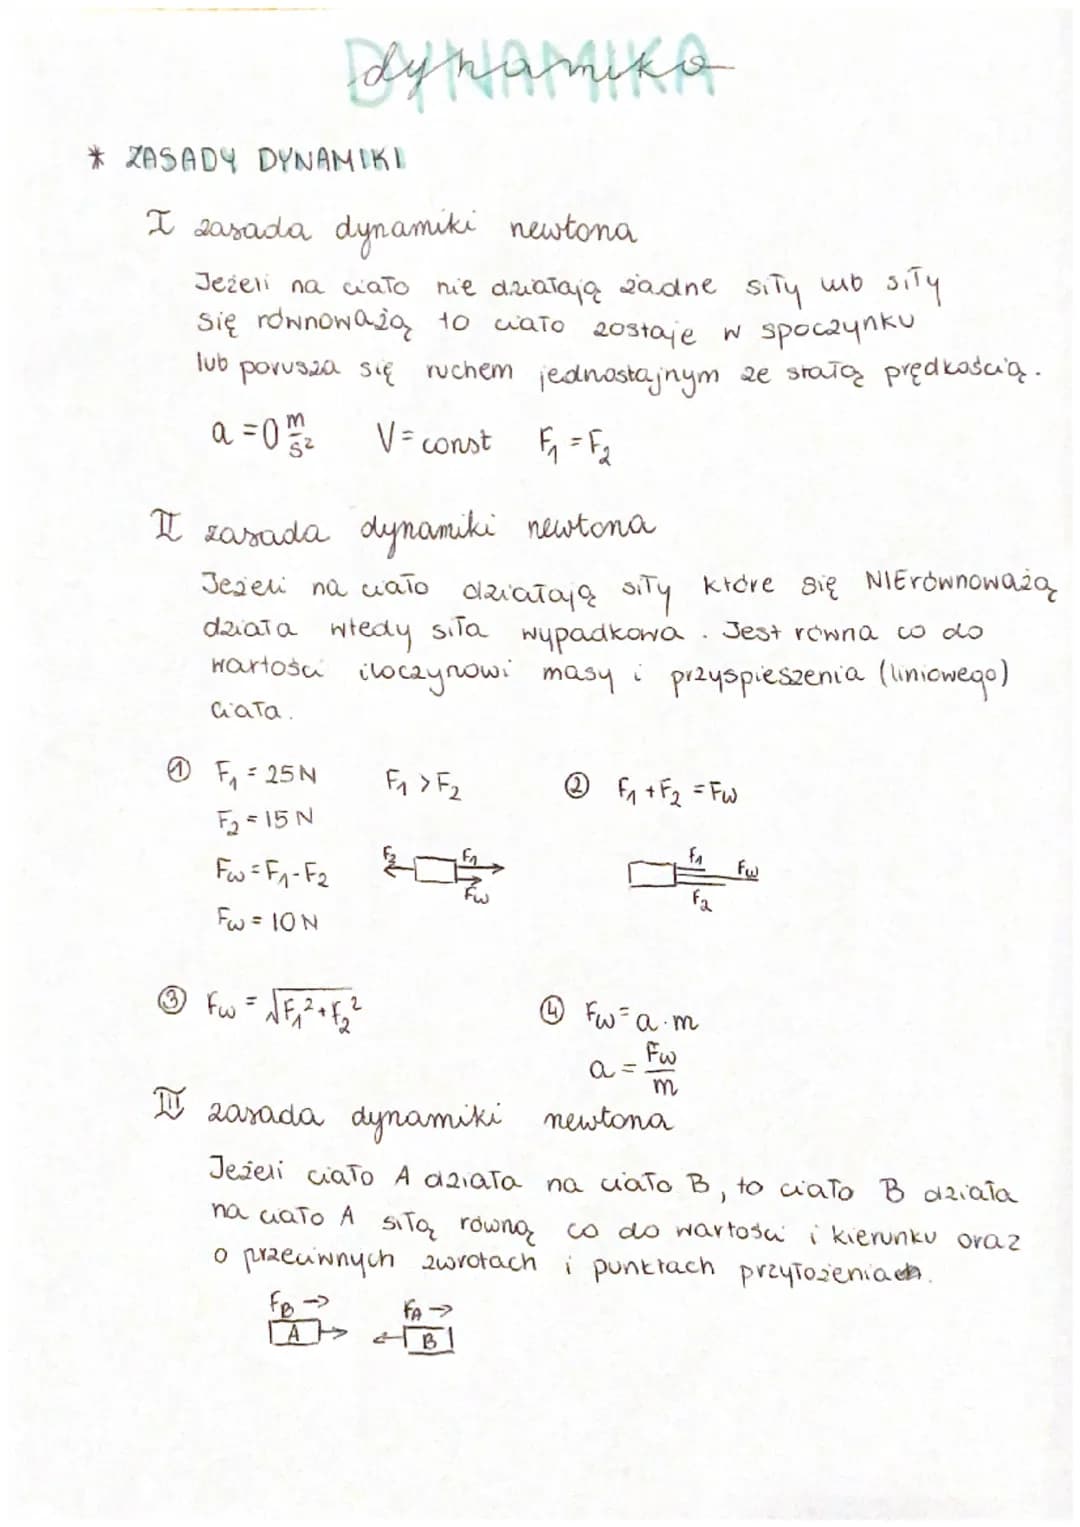 DYNAMIKA
dynamika
* ZASADY DYNAMIKI
I zasada dynamiki newtona
Jeżeli na ciało nie działają żadne siły lub siły
się równoważą to ciało zostaje w spoczynku
lub porusza się ruchem jednostajnym ze stałą prędkością.
a = 0 m/s² V = const F₁ = F₂
II zasada dynamiki newtona
Jeżeli na ciało działają siły które się NIErównoważą
działa wtedy siła wypadkowa. Jest równa co do
wartości iloczynowi masy i przyspieszenia (liniowego)
ciała.
① F₁ = 25N F₁ > F₂ ② F₁ + F₂ = Fw
F₂ = 15 N
Fw = F₁ - F₂ F₂ F₁ Fw F₁ Fw F₂
Fw = 10 N
③ Fw = √F₁² + F₂² ④ Fw = a · m
a = Fw/m
III zasada dynamiki newtona
Jeżeli ciało A działa na ciało B, to ciało B działa
na ciało A siłą równą co do wartości i kierunku oraz
o przeciwnych zwrotach i punktach przyłożenia.
FB → FA →
A B